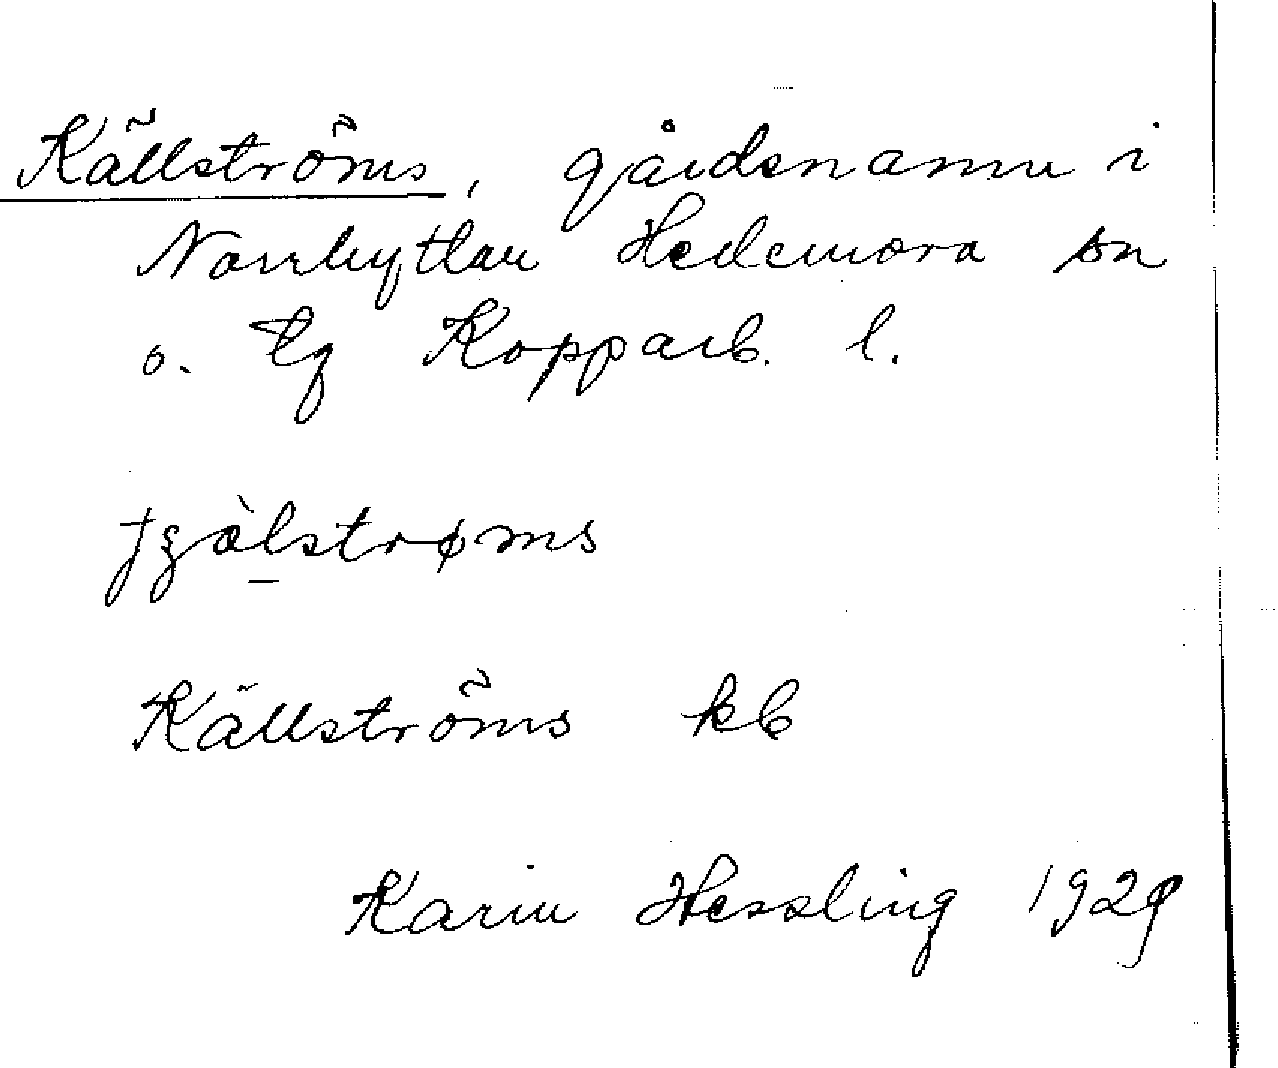 Källströms, gårdsnamn i
Norrhyttan Hedemora sn
o. tg Kopparb. l.
Källströms kb
Karin Hessling 1929